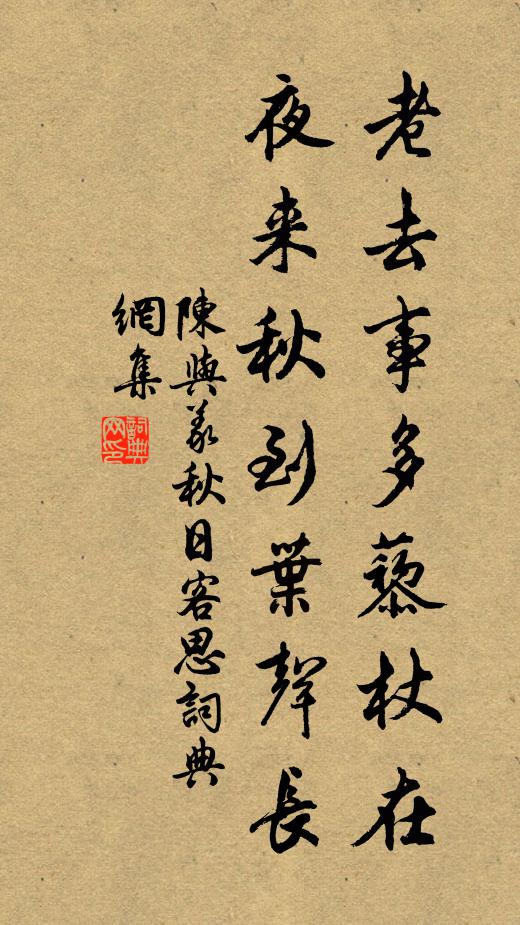 老去事多藜杖在
夜来秋到葉聲長
陳與義秋日客思詞典
網集
詞典网印